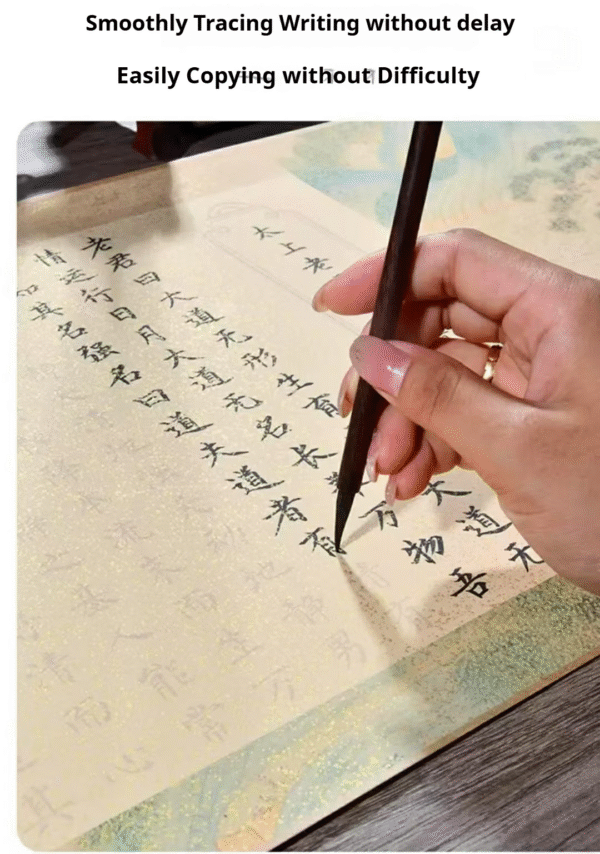 Smoothly Tracing Writing without delay
Easily Copying without Difficulty
太上老
老君曰大道无形生育大道无
情运行日月大道无名长万物吾
其名强名曰道夫道者有
地
男
流末而生万
之基人能常
清而心
其